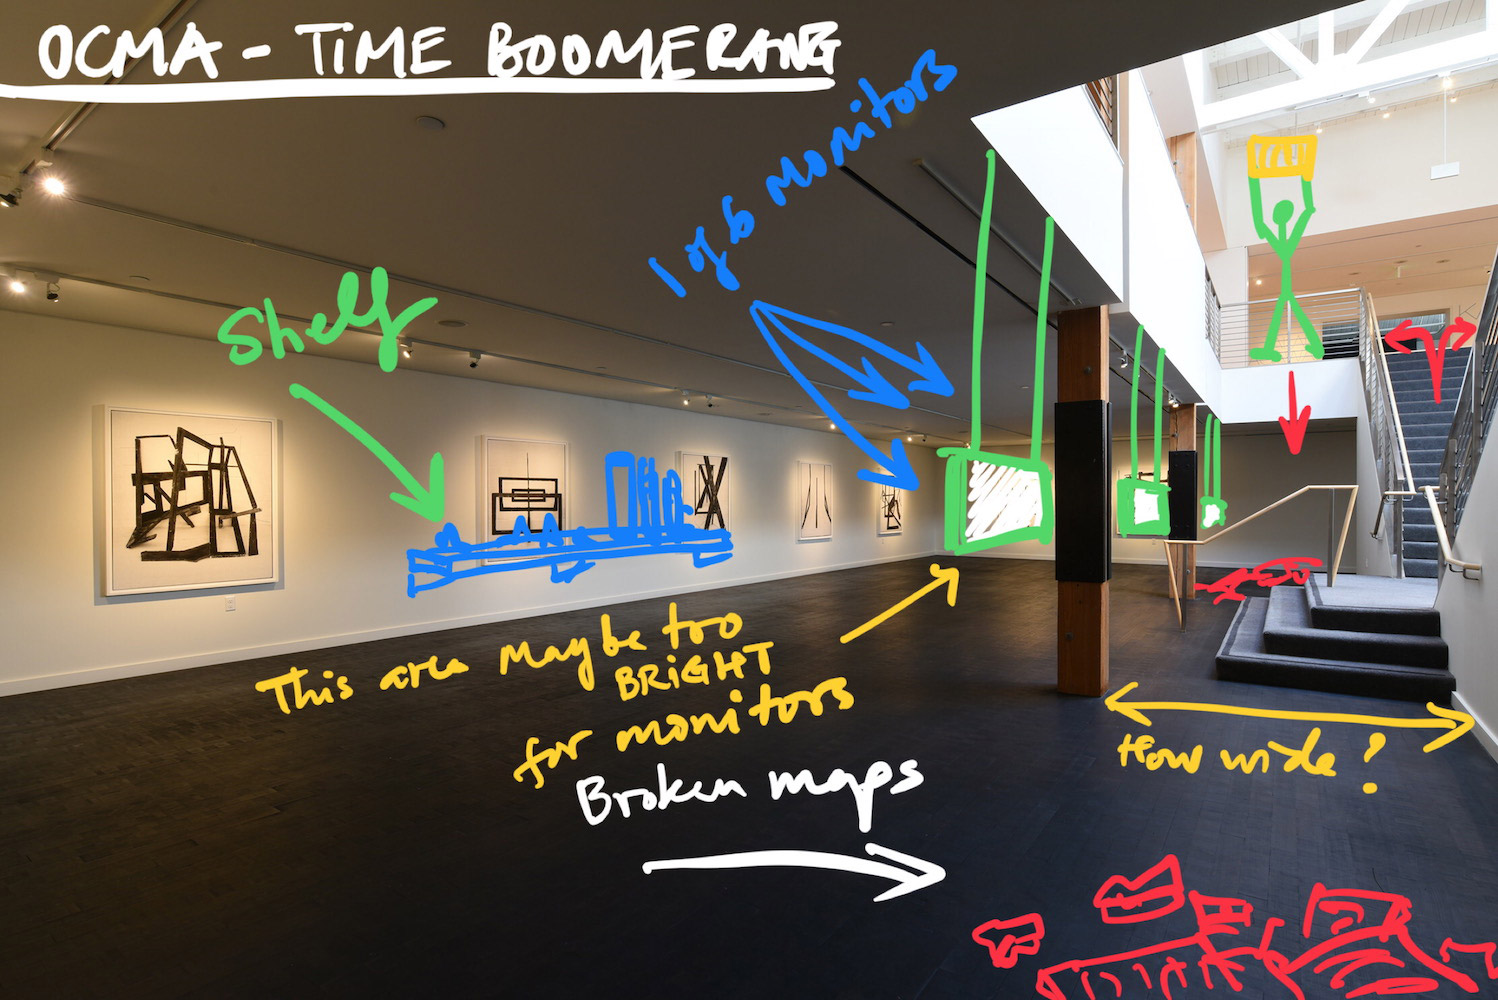 OCMA - TiME BOOMERANG
1 of 6 monitors
Shelf
This area Maybe too
BRiGHT
for monitors
How wide?
Broken maps